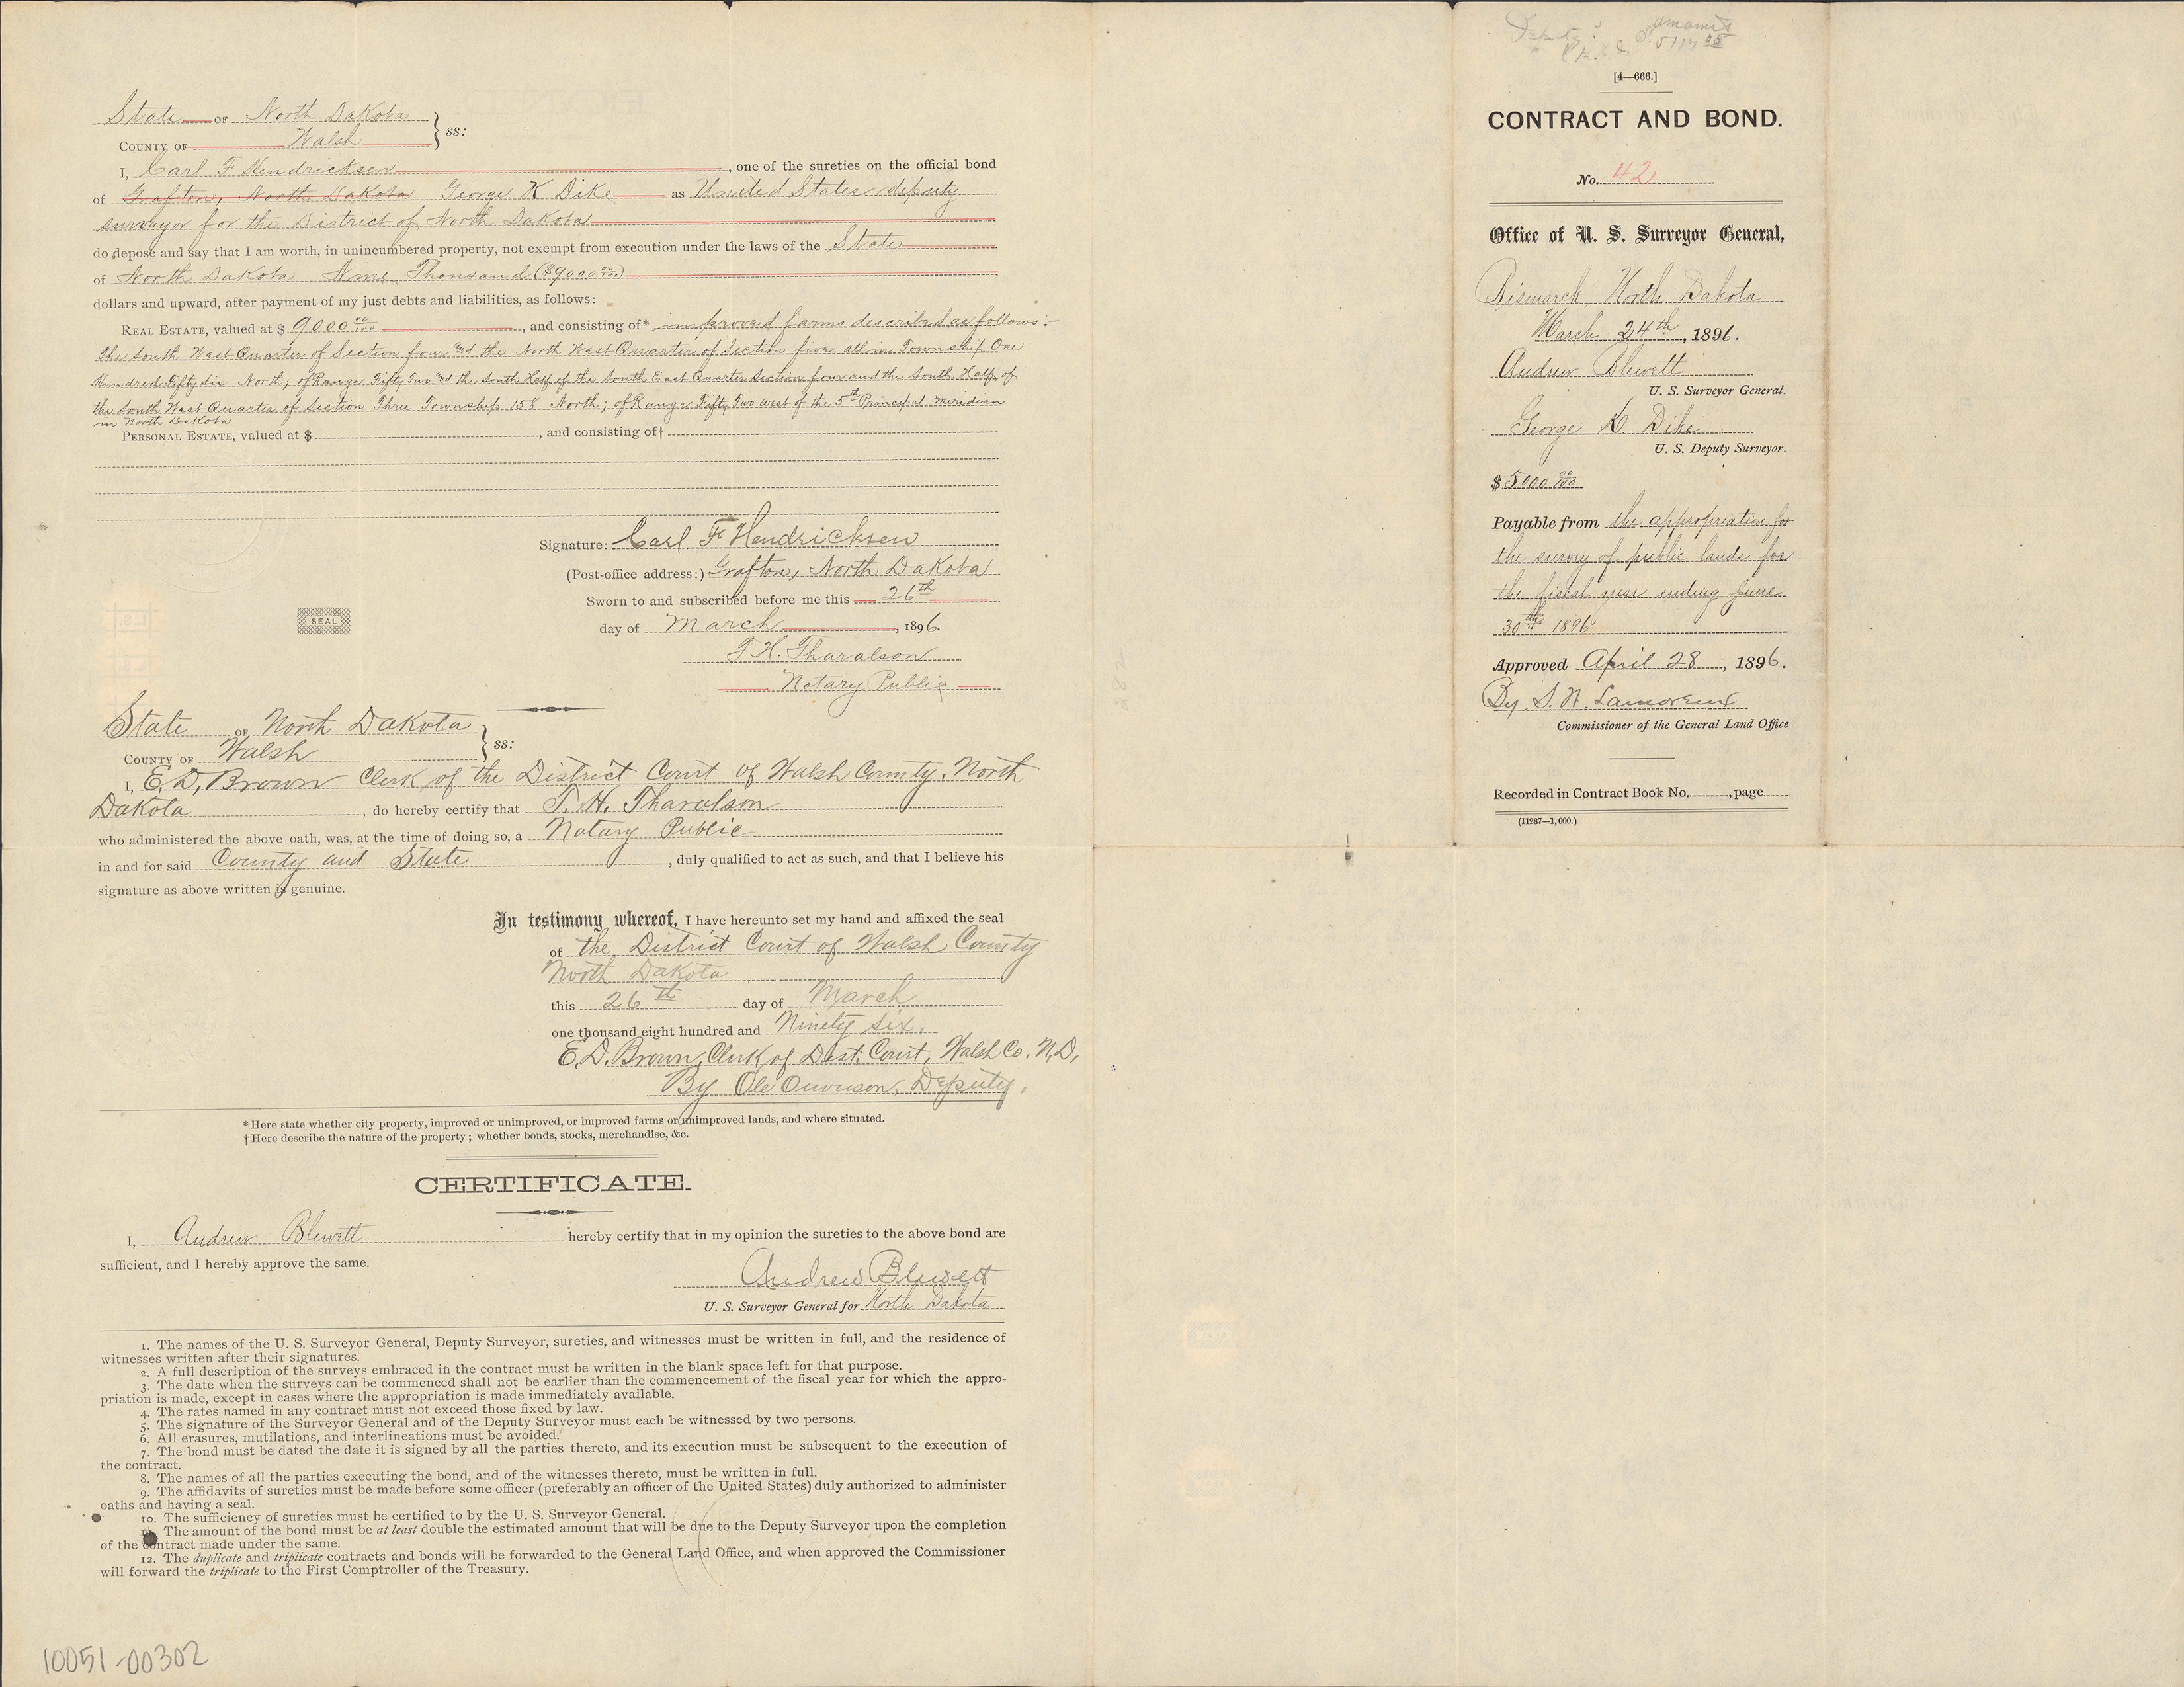 State OF North Dakota
COUNTY OF Walsh } ss:
I, Carl F Hendricksen, one of the sureties on the official bond
of Grafton, North Dakota George K Dike as United States deputy
surveyor for the District of North Dakota
do depose and say that I am worth, in unincumbered property, not exempt from execution under the laws of the State
of North Dakota Nine Thousand ($9000 00/100)
dollars and upward, after payment of my just debts and liabilities, as follows:
REAL ESTATE, valued at $ 9000 00/100, and consisting of* improved farms described as follows:-
The South West Quarter of Section four and the North West Quarter of Section five all in Township One
Hundred Fifty Six North; of Range Fifty Two and the South Half of the South East Quarter Section four and the South Half of
the South West Quarter of Section Three Township 158 North; of Range Fifty Two west of the 5th Principal Meridian
in North Dakota
PERSONAL ESTATE, valued at $ , and consisting of†
Signature: Carl F Hendricksen
(Post-office address:) Grafton, North Dakota
Sworn to and subscribed before me this 26th
SEAL
day of March, 1896.
T. H. Tharalson
Notary Public
State OF North Dakota
COUNTY OF Walsh } ss:
I, E. D. Brown Clerk of the District Court of Walsh County, North
Dakota, do hereby certify that T. H. Tharalson
who administered the above oath, was, at the time of doing so, a Notary Public
in and for said County and State, duly qualified to act as such, and that I believe his
signature as above written is genuine.
In testimony whereof, I have hereunto set my hand and affixed the seal
of the District Court of Walsh County
North Dakota
this 26th day of March
one thousand eight hundred and Ninety six.
E. D. Brown, Clerk of Dist. Court, Walsh Co. N.D.
By Ole Deputy.
* Here state whether city property, improved or unimproved, or improved farms or unimproved lands, and where situated.
† Here describe the nature of the property; whether bonds, stocks, merchandise, &c.
CERTIFICATE.
I, Andrew Blewett hereby certify that in my opinion the sureties to the above bond are
sufficient, and I hereby approve the same.
Andrew Blewett
U. S. Surveyor General for North Dakota
1. The names of the U. S. Surveyor General, Deputy Surveyor, sureties, and witnesses must be written in full, and the residence of
witnesses written after their signatures.
2. A full description of the surveys embraced in the contract must be written in the blank space left for that purpose.
3. The date when the surveys can be commenced shall not be earlier than the commencement of the fiscal year for which the appro-
priation is made, except in cases where the appropriation is made immediately available.
4. The rates named in any contract must not exceed those fixed by law.
5. The signature of the Surveyor General and of the Deputy Surveyor must each be witnessed by two persons.
6. All erasures, mutilations, and interlineations must be avoided.
7. The bond must be dated the date it is signed by all the parties thereto, and its execution must be subsequent to the execution of
the contract.
8. The names of all the parties executing the bond, and of the witnesses thereto, must be written in full.
9. The affidavits of sureties must be made before some officer (preferably an officer of the United States) duly authorized to administer
oaths and having a seal.
10. The sufficiency of sureties must be certified to by the U. S. Surveyor General.
The amount of the bond must be at least double the estimated amount that will be due to the Deputy Surveyor upon the completion
of the contract made under the same.
12. The duplicate and triplicate contracts and bonds will be forwarded to the General Land Office, and when approved the Commissioner
will forward the triplicate to the First Comptroller of the Treasury.
10051-00302
[4—666.]
CONTRACT AND BOND.
No. 42
Office of U. S. Surveyor General,
Bismarck, North Dakota
March 24th, 1896.
Andrew Blewett
U. S. Surveyor General.
George K. Dike
U. S. Deputy Surveyor.
$ 5000 00/100
Payable from the appropriation for
the survey of public lands for
the fiscal year ending June
30th 1896
Approved April 28, 1896.
By S. W. Lamoreux
Commissioner of the General Land Office
Recorded in Contract Book No. , page
(11287—1,000.)